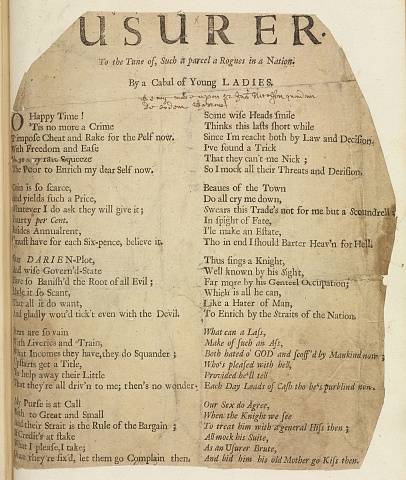 USURER.
To the Tune of, Such a parcel a Rogues in a Nation.
By a Cabal of Young LADIES.
O Happy Time!
'Tis no more a Crime
T'impose Cheat and Rake for the Pelf now.
With Freedom and Ease
Squeeze
The Poor to Enrich my dear Self now.
Coin is so scarce,
And yields such a Price,
Whatever I do ask they will give it;
per Cent.
Besides Annualrent,
I must have for each Six-pence, believe it.
Our DARIEN-Plot,
And wise Govern'd-State
Have so Banish'd the Root of all Evil;
Made it so Scant,
That all it do want,
And gladly wou'd tick't even with the Devil.
are so vain
With Liveries and Train,
What Incomes they have, they do Squander;
Upstarts get a Title,
To help away their Little
That they're all driv'n to me; then's no wonder.
My Purse is at Call
Both to Great and Small
And their Strait is the Rule of the Bargain;
Credit's at stake
What I please, I take;
When they're fix'd, let them go Complain then.
Some wise Heads smile
Thinks this lasts short while
Since I'm reacht both by Law and Decision,
I've found a Trick
That they can't me Nick;
So I mock all their Threats and Derision.
Beaues of the Town
Do all cry down,
Swears this Trade's not for me but a Scoundrell;
In spight of Fate,
I'le make an Estate,
Tho in end I should Barter Heav'n for Hell.
Thus sings a Knight,
Well known by his Sight,
Far more by his Genteel Occupation;
Which is all he can,
Like a Hater of Man,
To Enrich by the Straits of the Nation.
What can a Lass,
Make of such an Ass,
Both hated o' GOD and scoff'd by Mankind now;
Who's pleased with hell,
Provided he'll tell
Each Day Loads of Cash tho he's purblind now.
Our Sex do Agree,
When the Knight we see
To treat him with a general Hiss then;
All mock his Suite,
As an Usurer Brute,
And bid him his old Mother go Kiss then.